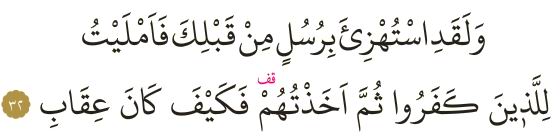 وَلَقَدِ اسْتُهْزِئَ بِرُسُلٍ مِنْ قَبْلِكَ فَاَمْلَيْتُ
لِلَّذ۪ينَ كَفَرُوا ثُمَّ اَخَذْتُهُمْ۠ قف فَكَيْفَ كَانَ عِقَابِ ٣٢